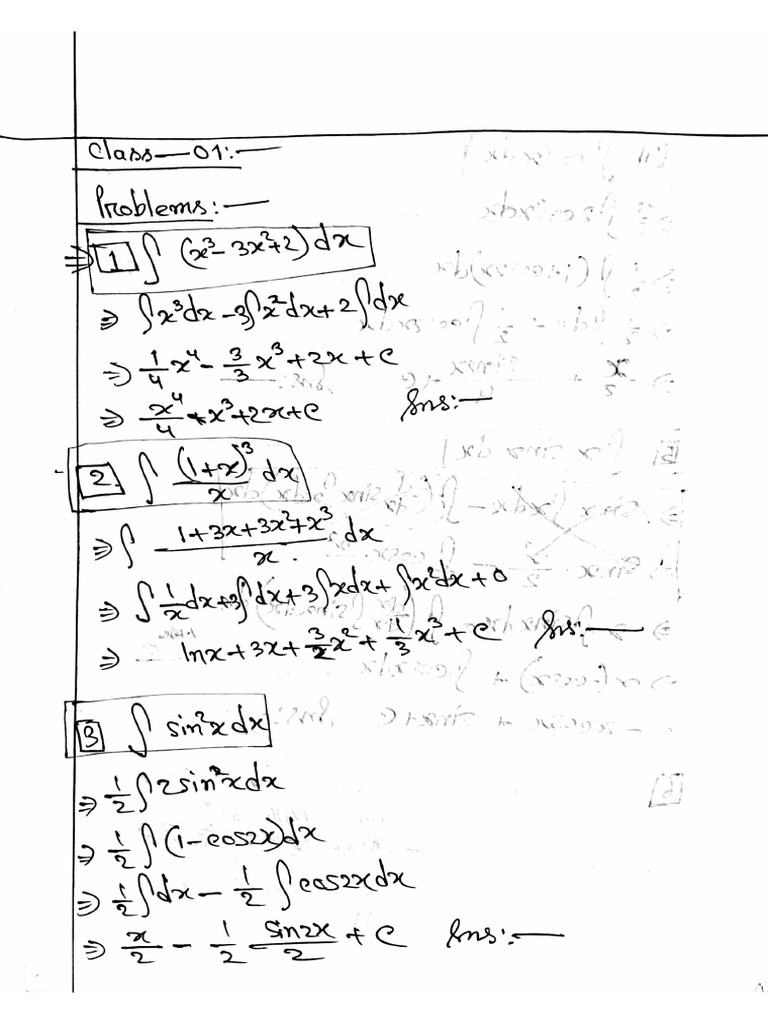 Class—01:—
Problems:—
⇒ 1 ∫ (x³ - 3x² + 2) dx
⇒ ∫x³dx - 3∫x²dx + 2∫dx
⇒ 1/4 x⁴ - 3/3 x³ + 2x + C
⇒ x⁴/4 - x³ + 2x + C Ans:—
2. ∫ (1+x)³/x dx
⇒ ∫ (1+3x+3x²+x³)/x dx
⇒ ∫ 1/x dx + 3∫dx + 3∫xdx + ∫x²dx + 0
⇒ lnx + 3x + 3/2 x² + 1/3 x³ + C Ans:—
3 ∫ sin²x dx
⇒ 1/2 ∫ 2sin²x dx
⇒ 1/2 ∫ (1-cos2x)dx
⇒ 1/2 ∫dx - 1/2 ∫ cos2xdx
⇒ x/2 - 1/2 sin2x/2 + C Ans:—